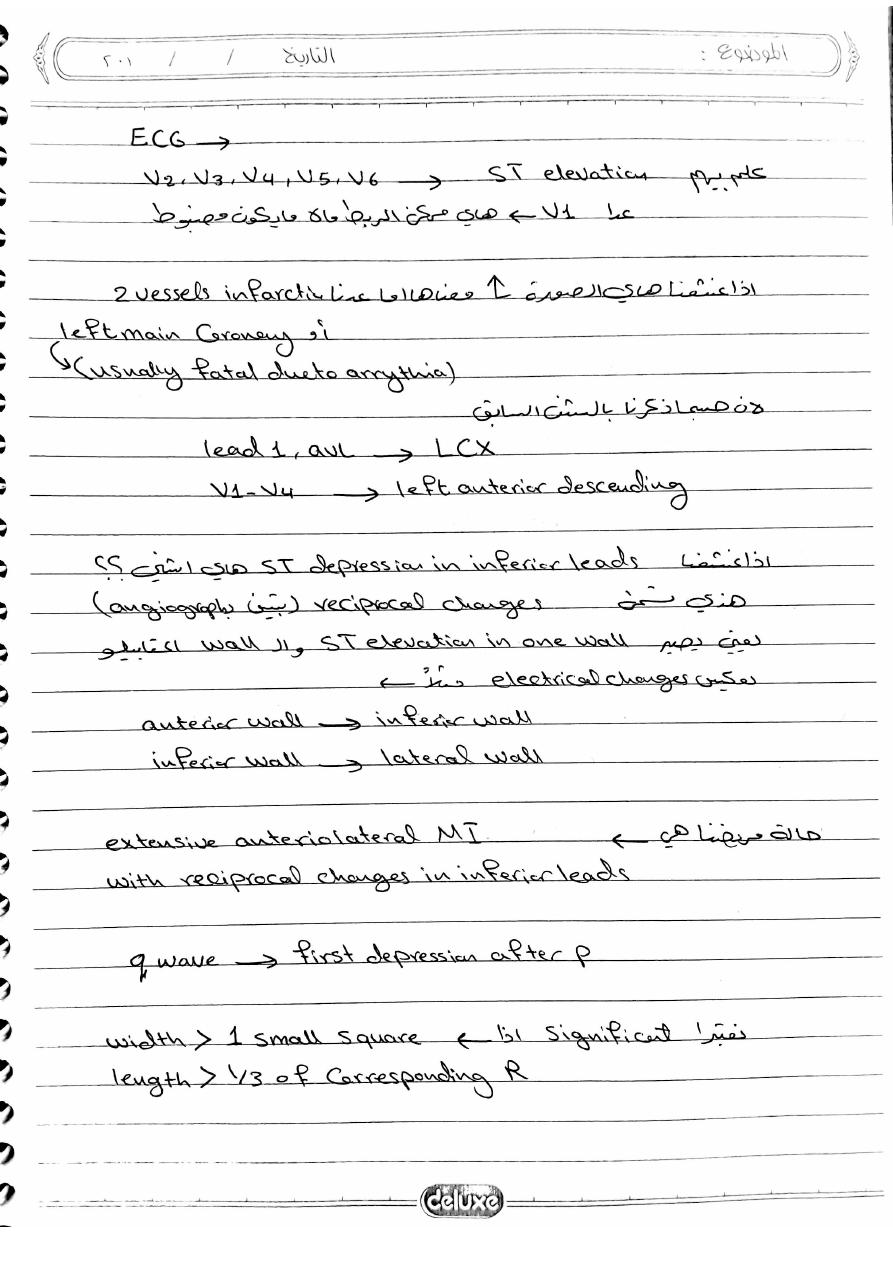 الموضوع : التاريخ / / ٢٠١
ECG →
V2, V3, V4, V5, V6 → ST elevation كلهم بيهم
عدا V1 ← هاي ممكن الربط ماله مايكون مضبوط
اذا شفنا هاي الصورة ↑ معناها اما عدنا 2 vessels infarction
أو left main Coronery
↳ (usually fatal due to arrythia)
لان حسب ماذكرنا بالسابق
lead 1, avL → LCX
V1-V4 → left anterior descending
اذا شفنا ST depression in inferior leads هاي اشنو ؟؟
هذي تسمى reciprocal changes (تبين بـ angiography)
يعني يصير ST elevation in one wall والـ wall اليقابله
يعكس electrical changes مثلاً ←
anterior wall → inferior wall
inferior wall → lateral wall
حالة مريضنا هي ← extensive anteriolateral MI
with reciprocal changes in inferior leads
q wave → first depression after p
نعتبرا significant اذا ← width > 1 small square
length > 1/3 of Corresponding R
deluxe